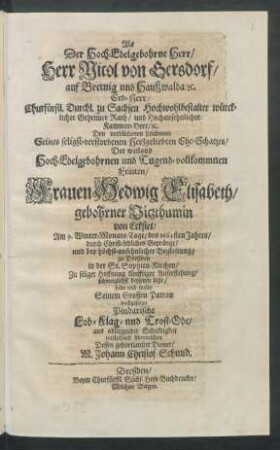 Als
Der Hoch-Edelgebohrne Herr/
Herr Nicol von Gersdorf/
auf Bretnig und Haußwalda ꝛc.
Erb-Herr/
Churfürstl. Durchl. zu Sachsen Hochwohlbestalter würck-
licher Geheimer Rath/ und Hochansehnlicher
Kammer-Herr/ ꝛc.
Den verblichenen Leichnam
Seines seligst-verstorbenen Hertzgeliebten Ehe-Schatzes/
Der weiland
Hoch-Edelgebohrnen und Tugend-vollkommnen
Frauen/
Frauen Hedwig Elisabeth/
gebohrner Vitzthumin
von Eckstet/
Am 9. Winter-Monats-Tage/ des Jahres/
durch Christ-üblichen Gepränge/
und bey höchst-ansehnlicher Begleitung/
zu Dreßden
in der St. Sophien-Kirchen/
Zu seliger Hoffnung künfftiger Auferstehung/
schmertzlichst beysetzen ließ/
Seinem Grossen Patron
nachgesetzte
Pindarische
Lob-Klag- und Trost-Ode/
aus obliegender Schuldigkeit
Dessen gehorsamster Diener/
M. Johann Christof Schmid.
Dreßden/
Beym Churfürstl. Sächs. Hof-Buchdrucker/
Melchior Bergen.